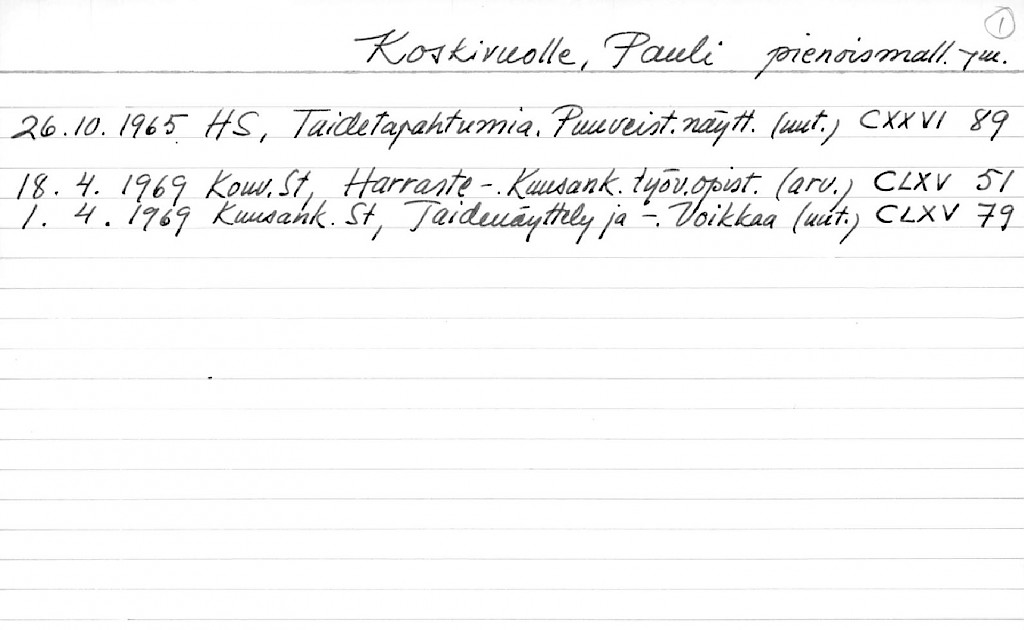 1
Koskivuolle, Pauli pienoismall. ym.
26.10.1965 HS, Taidetapahtumia. Puuveist. näytt. (uut.) CXXVI 89
18. 4. 1969 Kouv. St, Harraste -. Kuusank. työv.opist. (arv.) CLXV 51
1. 4. 1969 Kuusank. St, Taidenäyttely ja -. Voikkaa (uut.) CLXV 79